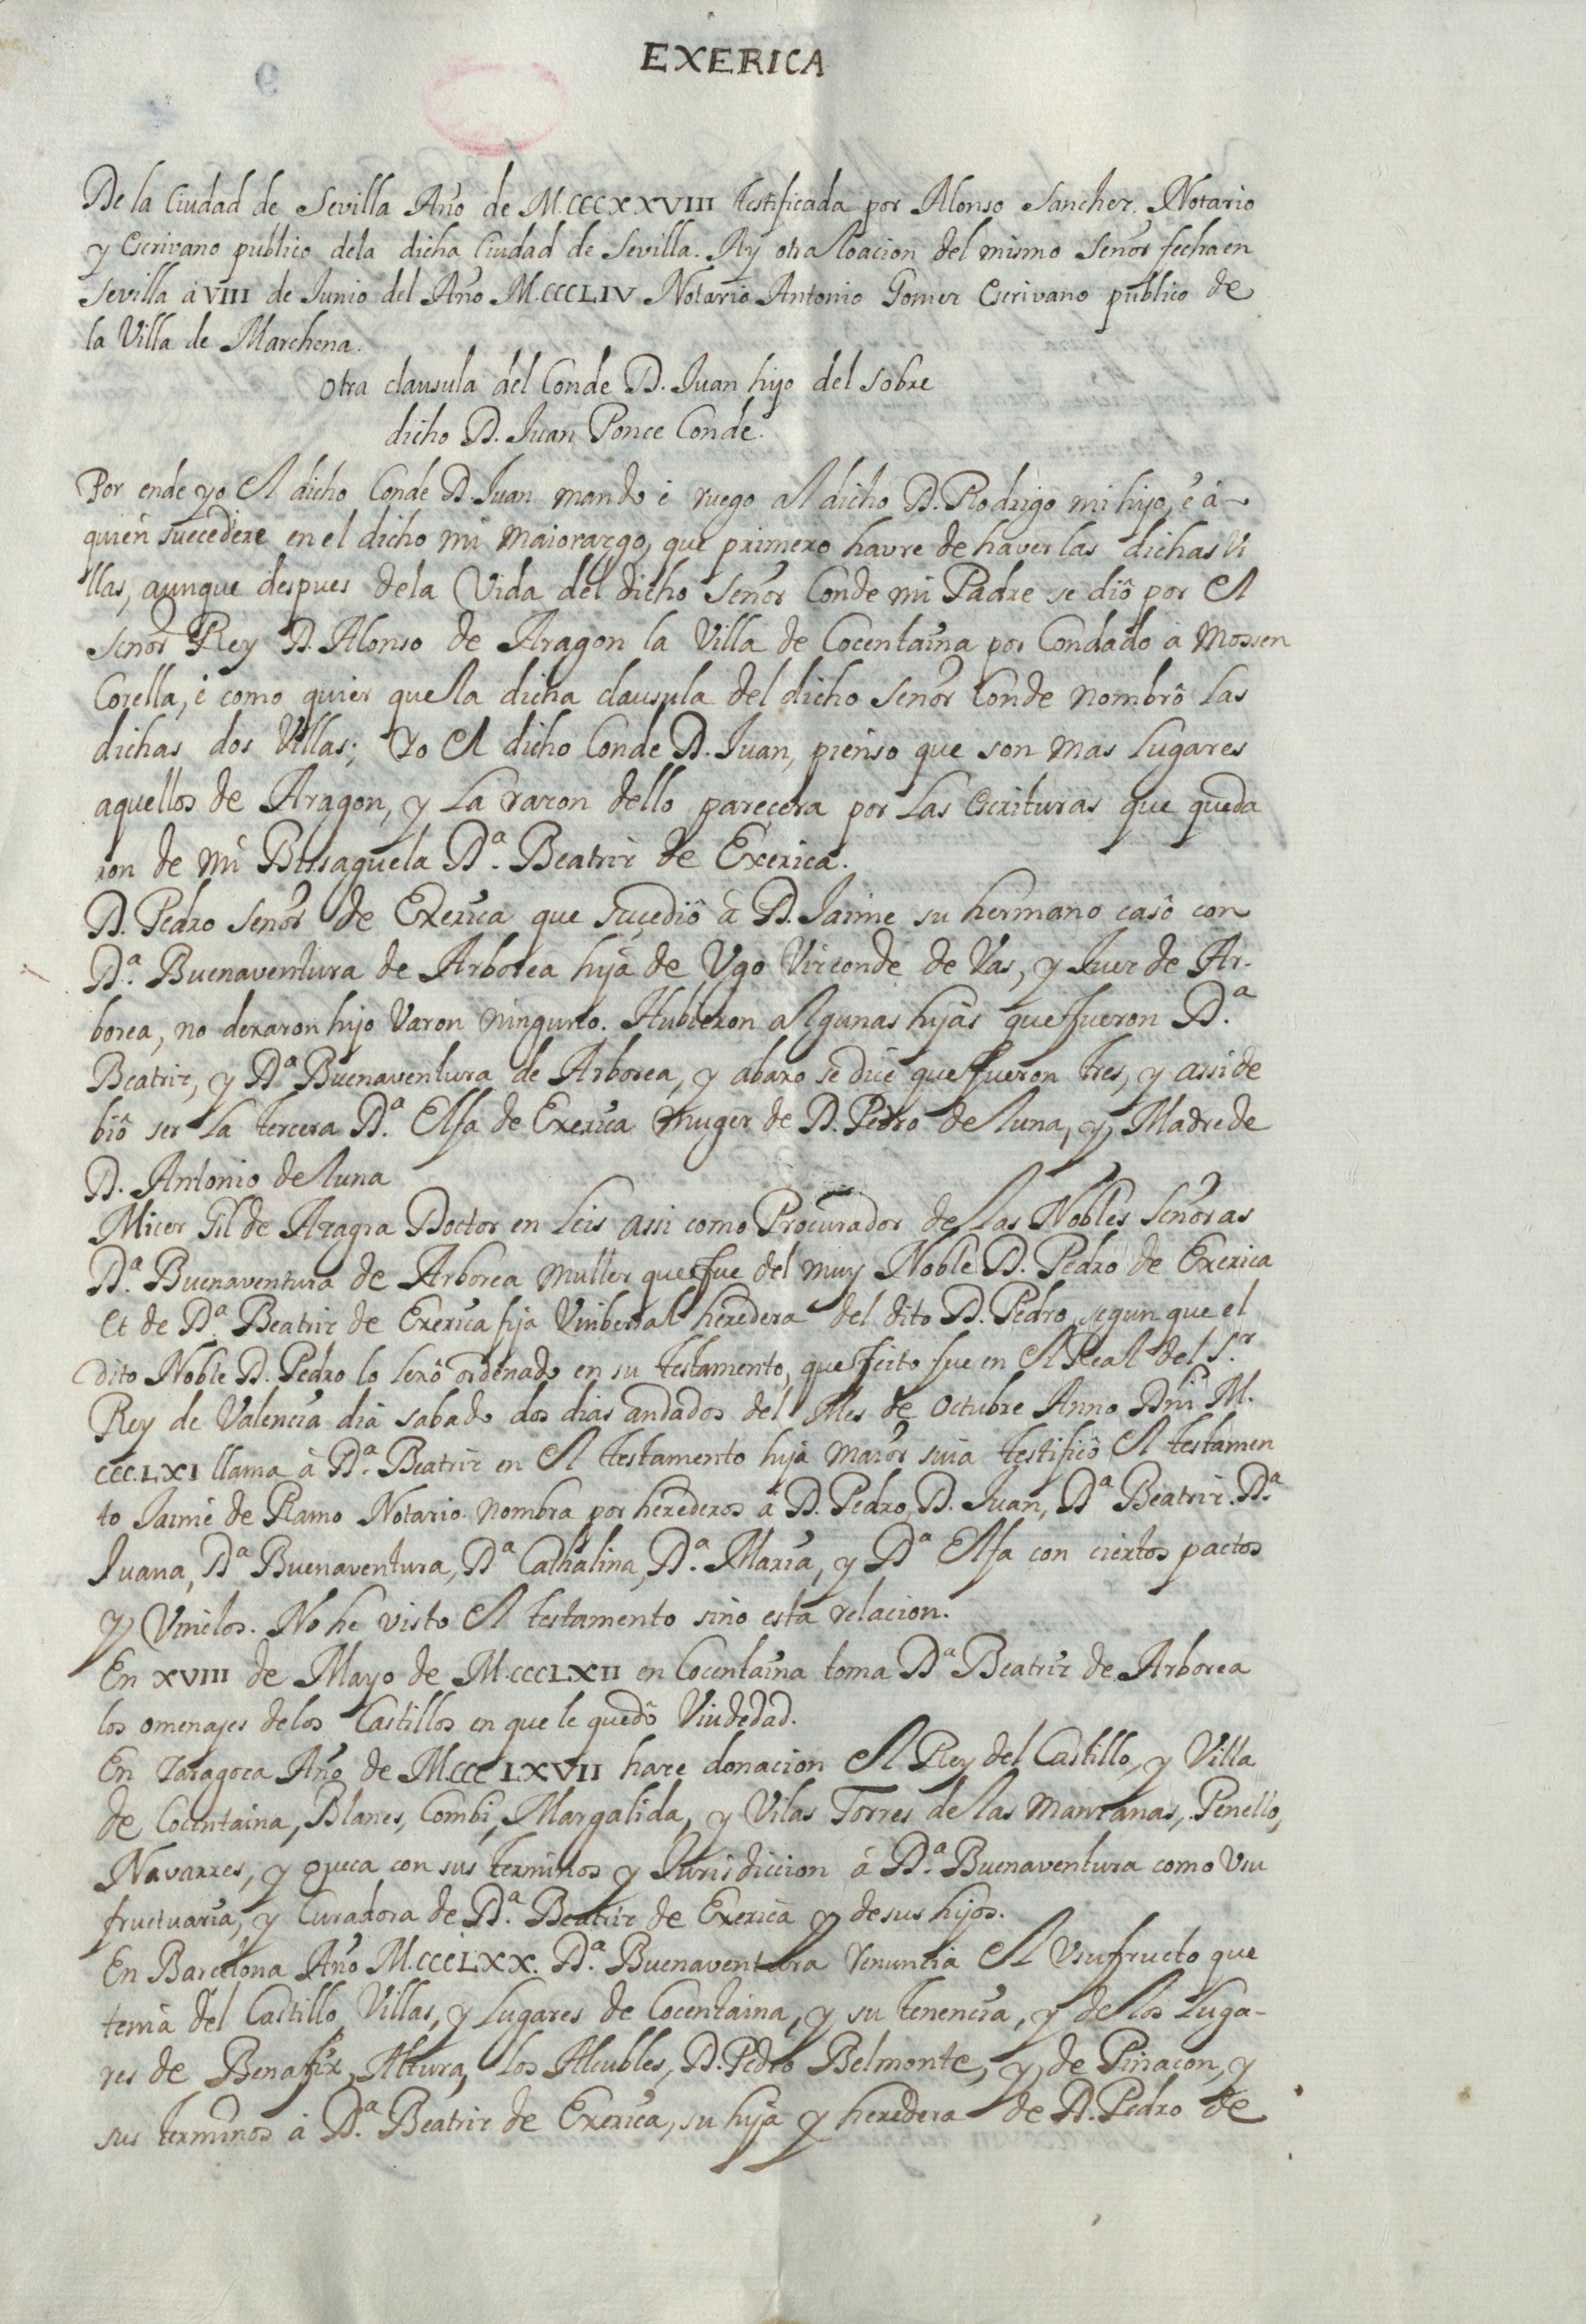 EXERICA
De la Ciudad de Sevilla Año de M.CCCXXVIII testificada por Alonso Sanchez Notario
y Escrivano publico dela dicha Ciudad de Sevilla. Ay otra loacion del mismo Señor fecha en
Sevilla á VIII de Junio del Año M.CCCLIV Notario Antonio Gomez Escrivano publico de
la Villa de Marchena.
Otra clausula del Conde D. Juan hijo del sobre
dicho D. Juan Ponce Conde.
Por ende yo el dicho Conde D. Juan mando é ruego al dicho D. Rodrigo mi hijo, é á
quien suecediere en el dicho mi maiorazgo, que primero havre de haver las dichas Vi
llas, aunque despues dela Vida del dicho Señor Conde mi Padre se diô por el
Señor Rey D. Alonso de Aragon la Villa de Cocentaina por Condado à Mossen
Corella, é como quier que la dicha clausula del dicho Señor Conde nombrô las
dichas dos Villas; Yo el dicho Conde D. Juan, pienso que son mas Lugares
aquellos de Aragon, y la razon dello parecera por las Escrituras que queda
ron de mi Bissaguela D.ª Beatriz de Exerica.
D. Pedro Señor de Exerica que suçediô à D. Jaime su hermano casô con
D.ª Buenaventura de Arborea hija de Ugo Vizconde de Vas, y Juez de Ar-
borea, no dexaron hijo Varon ninguno. Hubieron algunas hijas que fueron D.ª
Beatriz, y D.ª Buenaventura de Arborea, y abaxo se dice que fueron tres, y assi de
biô ser la tercera D.ª Elfa de Exerica muger de D. Pedro de luna, y Madre de
D. Antonio de luna
Micer Gil de Aragra Doctor en Leis assi como Procurador de las Nobles Señoras
D.ª Buenaventura de Arborea muller que fue del muy Noble D. Pedro de Exerica
et de D.ª Beatriz de Exerica fija Uniberral heredera del dito D. Pedro segun que el
dito Noble D. Pedro lo lexô ordenado en su testamento, que feito fue en el Real del S.r
Rey de Valencia dia sabado dos dias andados del Mes de Octubre Anno Dñi M.
CCC.LXI llama à D.ª Beatriz en el testamento hija maior suia testificô el testamen
to Jaime de Ramo Notario. nombra por herederos à D. Pedro, D. Juan, D.ª Beatriz. D.ª
Juana, D.ª Buenaventura, D.ª Cathalina, D.ª Maria, y D.ª Elfa con ciertos pactos
y Vinclos. No he visto el testamento sino esta relacion.
En XVIII de Mayo de M.CCCLXII en Cocentaina toma D.ª Beatriz de Arborea
los omenajes delos Castillos en que le quedô Viudedad.
En Zaragoca Año de M.CCC LXVII haze donacion el Rey del Castillo, y Villa
de Cocentaina, Planes, Combi, Margalida, y Vilas Torres de las Manzanas, Penello,
Navarres, y queca con sus terminos y Jurisdiccion á D.ª Buenaventura como Usu
fructuaria, y Curadora de D.ª Beatriz de Exerica y de sus hijos.
En Barcelona Año M.CCCLXX. D.ª Buenaventura renuncia el Usufructo que
tenia del Castillo, Villas, y Lugares de Cocentaina, y su tenencia, y de los Luga-
res de Benafix, Altura, los Alcubles, D. Pedro Belmonte, y de Pinacon, y
sus terminos à D.ª Beatriz de Exerica, su hija y heredera de D. Pedro de